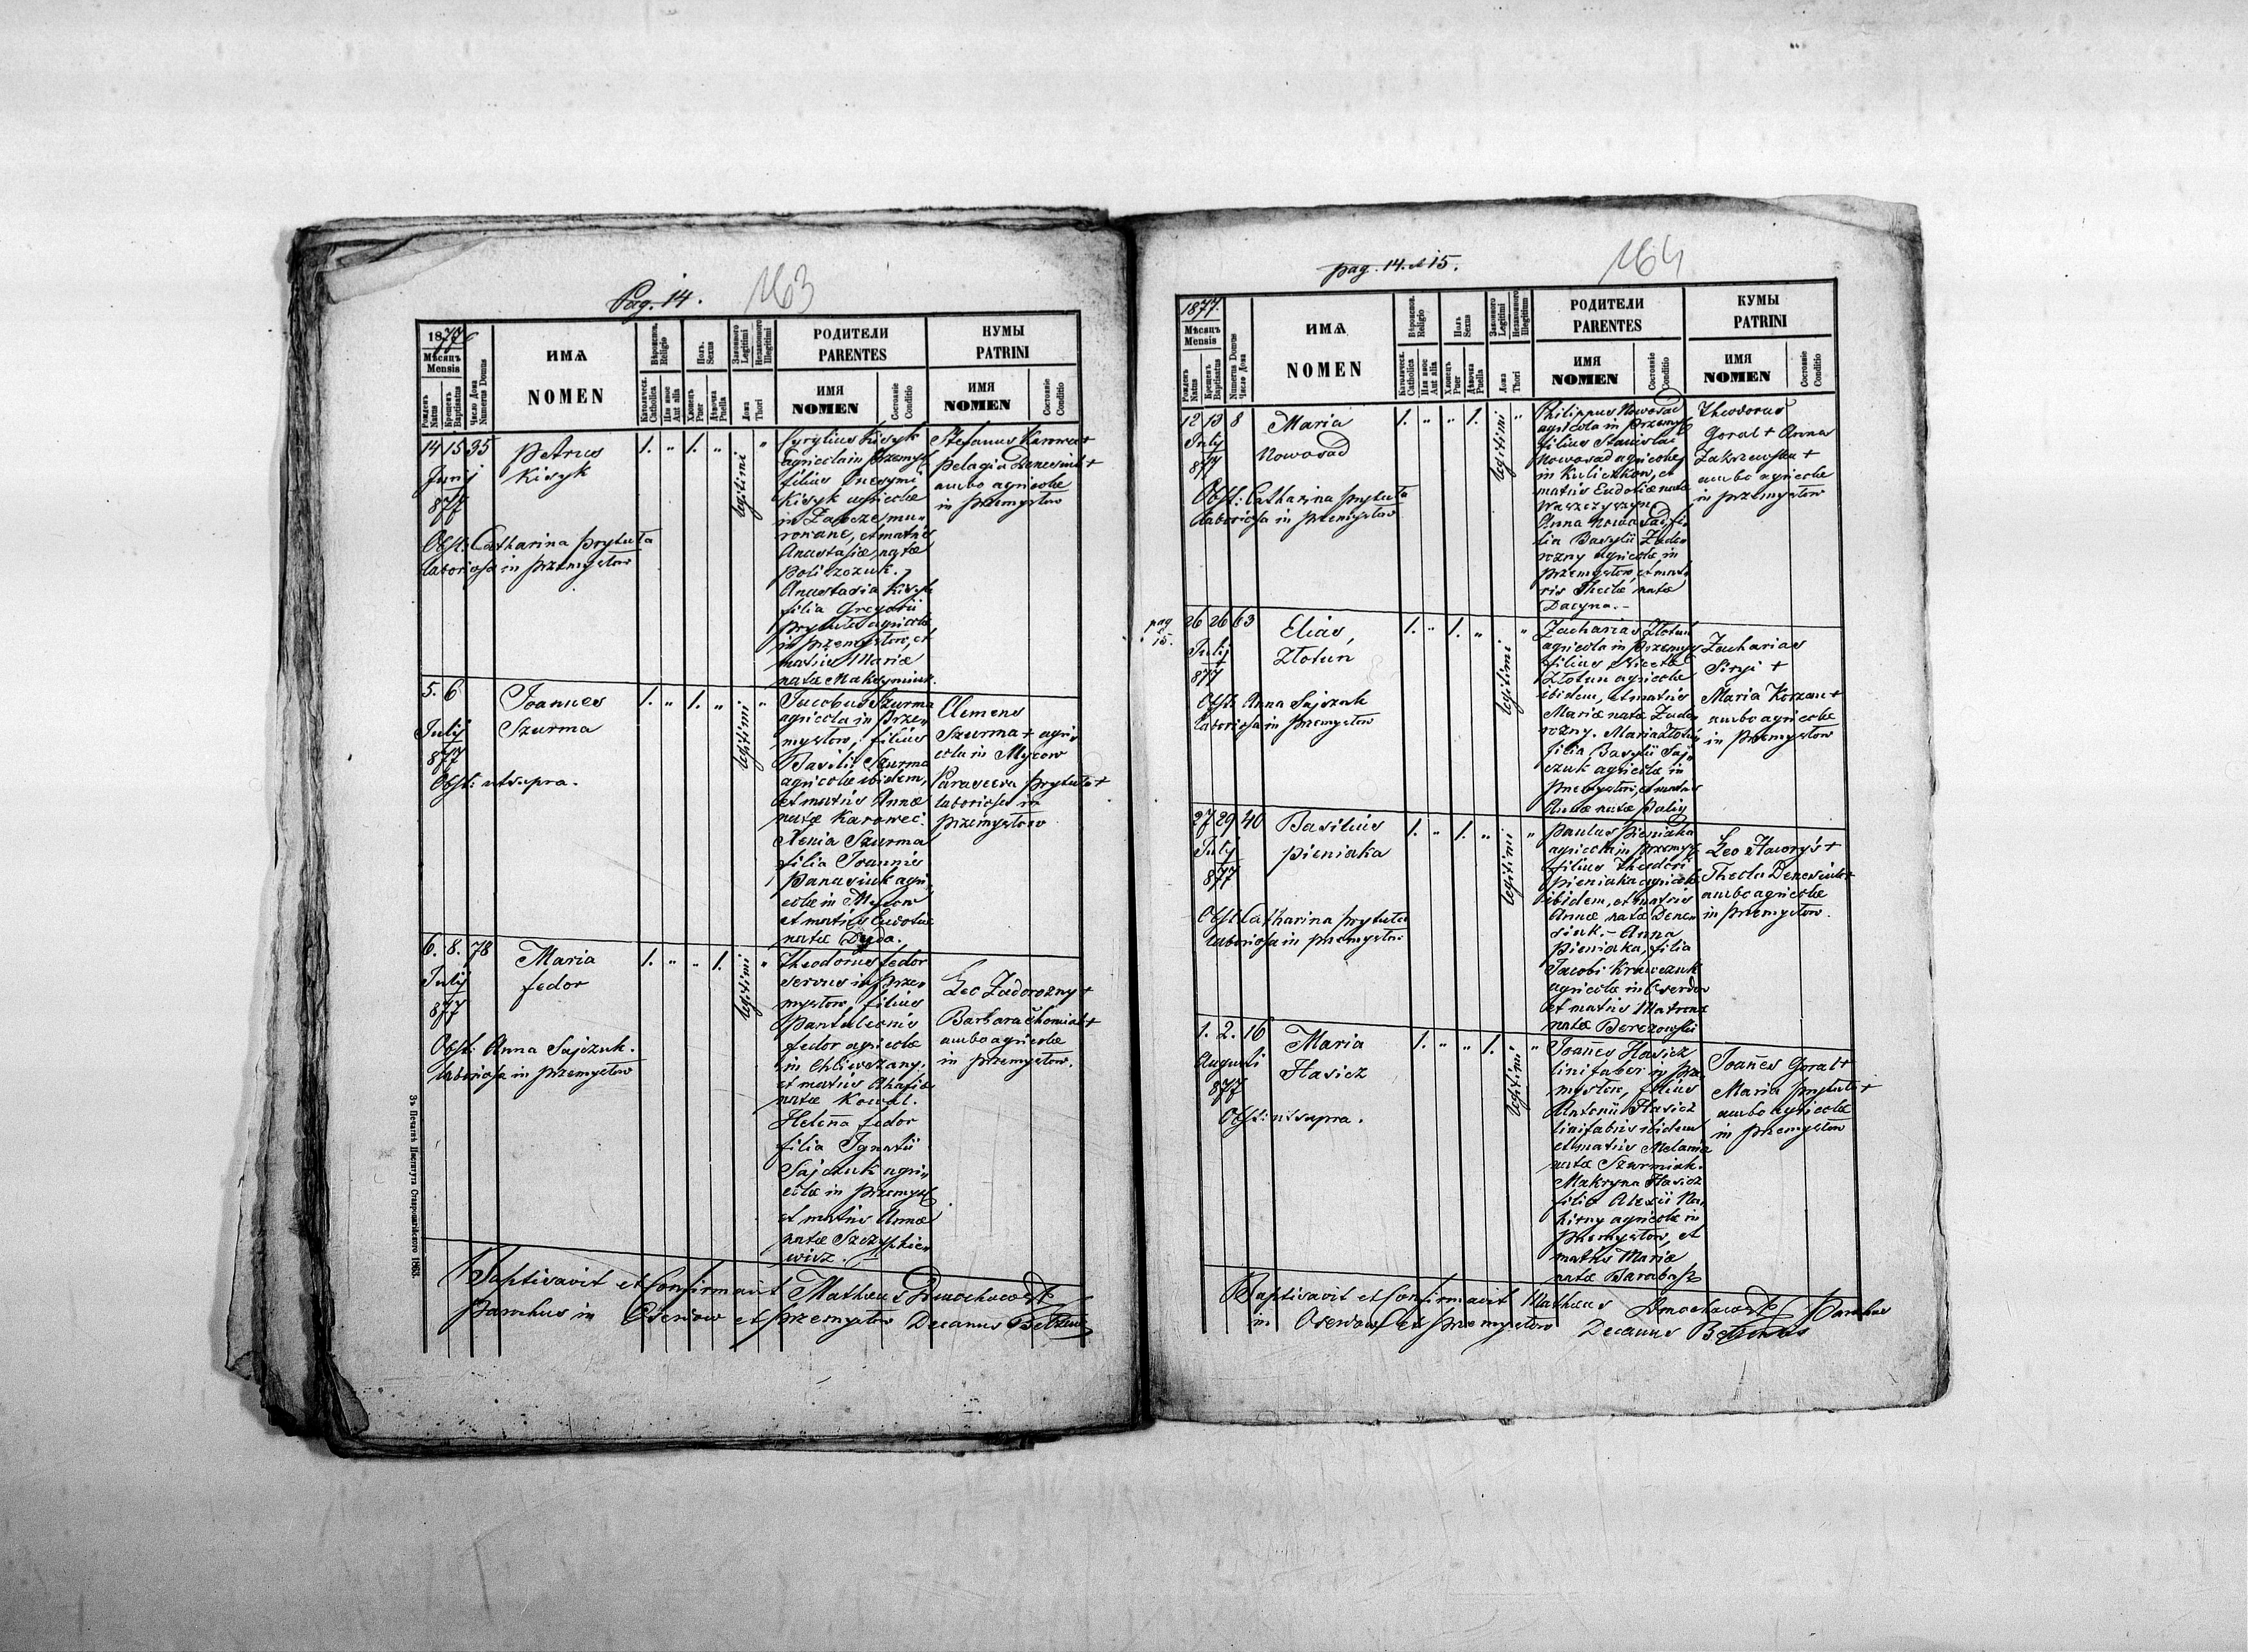 Pag. 14.
163
1877
Мѣсяцъ
Mensis
Рожденъ
Natus
Крещенъ
Baptisatus
Число Дома
Numerus Domus
ИМѦ
NOMEN
Вѣроиспов.
Religio
Католическ.
Catholica
Или иное
Aut alia
Полъ.
Sexus
Хлопецъ
Puer
Дѣвочка
Puella
Законного
Legitimi
Незаконного
Illegitimi
Ложа
Thori
РОДИТЕЛИ
PARENTES
ИМЯ
NOMEN
Состояніе
Conditio
КУМЫ
PATRINI
ИМЯ
NOMEN
Состояніе
Conditio
14 15 35
Junij
877
Petrus
Kisyk
1. " 1. "
legitimi "
Cyrylius Kisyk
agricola in Przemysł
filius Onesymi
Kisyk agricolæ
in
et matris
Anastasiæ natæ
Poliszczuk.
Anastasia Kisyk
filia Gregorii
Prytuła agricolæ
in Przemysłow, et
matris Mariæ
natæ Maksymiuk.
Stefanus Karowec +
Pelagia Denesiuk +
ambo agricolæ
in Przemysłow
Obst: Catharina Prytuła
laboriosa in Przemysłow
5. 6
Julij
877
Joannes
Szurma
1. " 1. "
legitimi "
Jacobus Szurma
agricola in Prze-
mysłow, filius
Basilii Szurma
agricolæ ibidem,
et matris Annæ
natæ Karowec.
Xenia Szurma
filia Joannis
Panasiuk agri-
colæ in Mycow
et matris Eudotiæ
natæ Dyda.
Clemens
Szurma + agri-
cola in Mycow
Parasceva Prytuła +
laboriosa in
Przemysłow
Obst: ut supra.
6. 8. 78
Julij
877
Maria
Fedor
1. " " 1.
legitimi "
Theodorus Fedor
servus in Prze-
mysłow, filius
Pantaleonis
Fedor agricolæ
in Chliwczany,
et matris Ahafiæ
natæ Kowal.
Helena Fedor
filia Ignatii
Sajczuk agri-
colæ in Przemysł
et matris Annæ
natæ Szczyrkie-
wicz.
Leo Zadorozny +
Barbara Chomiak +
ambo agricolæ
in Przemysłow.
Obst: Anna Sajczuk.
laboriosa in Przemysłow
Baptisavit et Confirmavit Mathæus Dmochowski
Parochus in Oserdow et Przemysłow Decanus Belzensis
Зъ Печатнѣ Института Ставропигійского 1863.
pag. 14. et 15.
164
1877.
Мѣсяцъ
Mensis
Рожденъ
Natus
Крещенъ
Baptisatus
Numerus Domus
Число Дома
ИМѦ
NOMEN
Вѣроиспов.
Religio
Католическ.
Catholica
Или иное
Aut alia
Полъ
Sexus
Хлопецъ
Puer
Дѣвочка
Puella
Законного
Legitimi
Незаконного
Illegitimum
Ложа
Thori
РОДИТЕЛИ
PARENTES
ИМЯ
NOMEN
Состояніе
Conditio
КУМЫ
PATRINI
ИМЯ
NOMEN
Состояніе
Conditio
12 13 8
Julij
877
Maria
Nowosad
1. " " 1.
legitimi "
Philippus Nowosad
agricola in Przemysł
filius Stanislai
Nowosad agricolæ
in Kuliczkow, et
matris Eudotiæ natæ
Waszczyszyn.
Anna Nowosad fi-
lia Basylii Zado-
rozny agricolæ in
Przemysłow, et mat-
ris Theclæ natæ
Dacyna.-
Theodorus
Goral + Anna
Zakrzewska +
ambo agricolæ
in Przemysłow
Obst: Catharina Prytuła
laboriosa in Przemysłow
pag
15.
26 26 63
Julij
877
Elias,
Złotun
1. " 1. "
legitimi "
Zacharias Złotun
agricola in Przemysł
filius Nicetæ
Złotun agricolæ
ibidem, et matris
Mariæ natæ Zado-
rozny. Maria Złotun
filia Basylii Saj-
czuk agricolæ in
Przemysłow, et matris
Annæ natæ Paliy
Zacharias
Siryj +
Maria Korzan +
ambo agricolæ
in Przemysłow
Obst: Anna Sajczuk
laboriosa in Przemysłow
27 29 40
Julij
877
Basilius
Pieniaka
1. " 1. "
legitimi "
Paulus Pieniaka
agricola in Przemysł
filius Theodori
Pieniaka agricolæ
ibidem, et matris
Annæ natæ Dene-
siuk.- Anna
Pieniaka, filia
Jacobi Krawczuk
agricolæ in Oserdow
et matris Matronæ
natæ Berezowski
Leo Haworys +
Thecla Denesiuk +
ambo agricolæ
in Przemysłow.
Obst: Catharina Prytuła
laboriosa in Przemysłow
1. 2. 16
Augusti
877
Maria
Hasicz
1. " " 1.
legitimi "
Joannes Hasicz
linifaber in Prze-
mysłow, filius
Antonii Hasicz
linifabris ibidem
et matris Melaniæ
natæ Szurmiak.
Makryna Hasicz
filia Alexii Na-
hirny agricolæ in
Przemysłow, et
matris Mariæ
natæ Barabasz
Joannes Goral +
Maria Prytuła +
ambo agricolæ
in Przemysłow
Obst: ut supra.
Baptisavit et Confirmavit Mathæus Dmochowski Parochus
in Oserdow et Przemysłow Decanus Belzensis